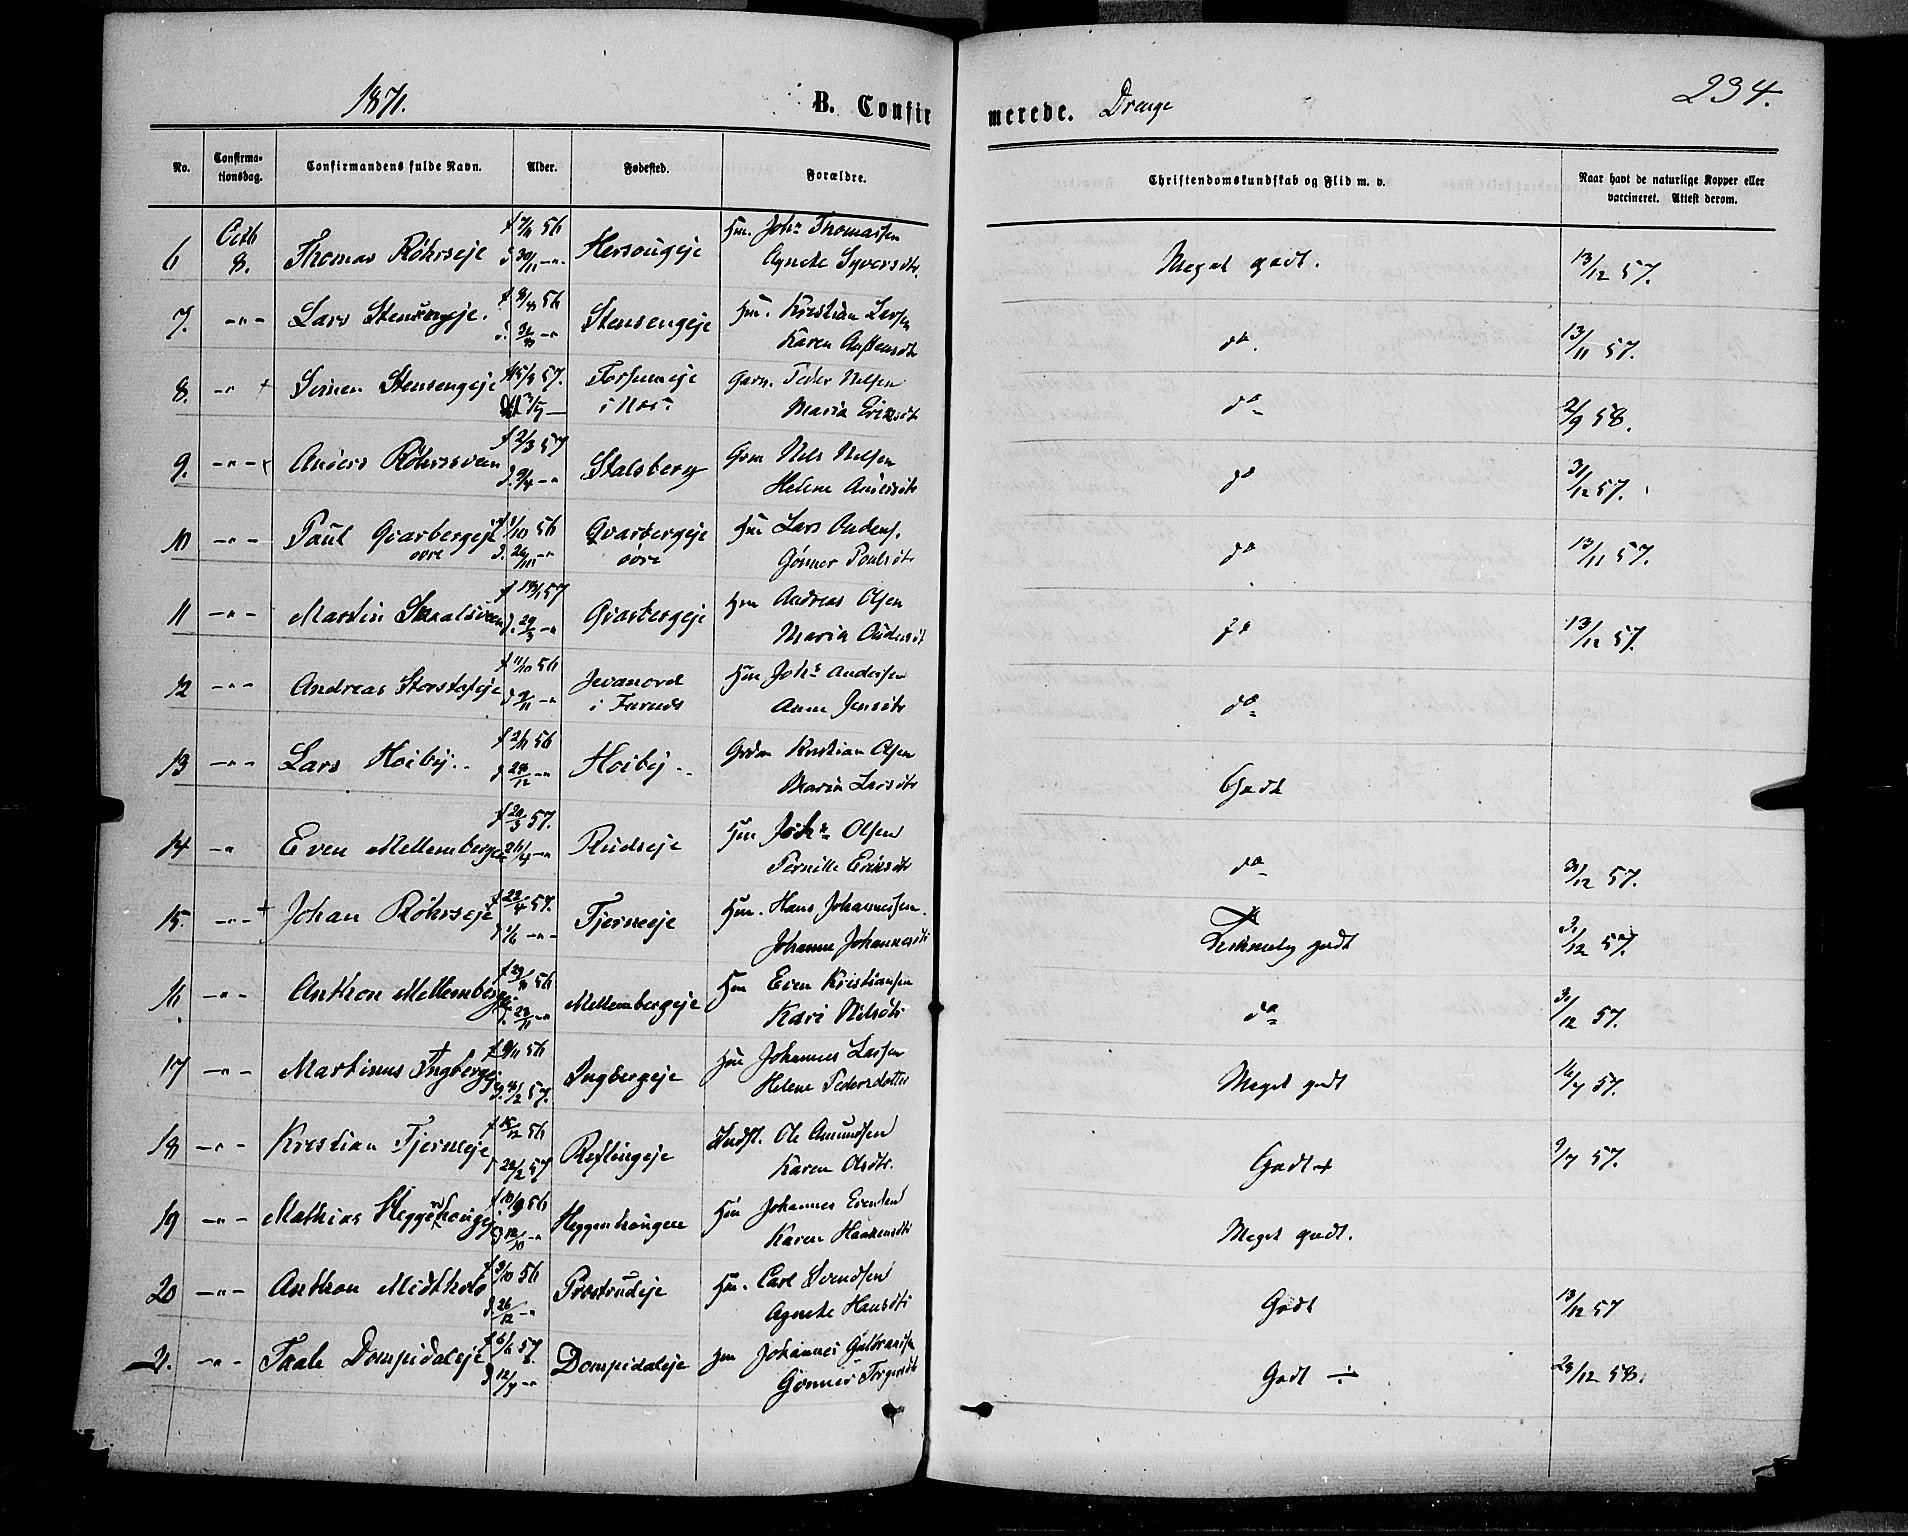 1871.
B. Confirmerede. Drenge
234.
No. Confirmationsdag. Confirmandens fulde Navn. Alder. Fødested. Forældre. Christendomskundskab og Flid m. v. Naar havt de naturlige Kopper eller vaccineret. Attest derom.
6 Octb 8. Thomas Röhrseje 56 Hersougeje Hm. Johs Thomassen
Agnethe Syversdtr. Meget godt. 13/12 57.
7. -"- Lars Stensengeje. 56 Stensengeje Hm. Kristian Larsen
Karen do. 13/11 57.
8. -" + Simen Stensengeje 57. i Næs. Peder Nilsen
Maria Eriksdtr do 2/9 58.
9. -"- Anders Röhrssveen 2/3 57 Stalsberg Nils Nilsen
Helene Andersdtr do 31/12 57.
10 -"- Paul Qvarbergeje øvre 1/10 56 Qvarbergeje øvre Hm Lars
Gønner Poulsdtr do 13/11 57.
11 -"- Martin 57 Qvarbergeje Hm Andreas Olsen
Maria do 13/12 57.
12 -"- Andreas 11/10 56 i Furnæs Hm Johs Andersen
Anne Jensdtr do
13 -"- Lars Hoibij 56 Hoibij Kristian Olsen
Maria Larsdtr Godt
14 -" Even Mellembergeje 20/3 57. 26/4 -" Rudseje Hm Johs Olsen
Pernille Eriksdtr do 31/12 57.
15. -"- + Johan Röhrseje 22/4 57. 1/6 -"- Tjerneeje Hm. Hans Johannessen.
Johanne Johannesdtr Temmelig godt 31/12 57.
16. -"- Anthon Mellembergeje 56 Mellembergeje Hm Even Kristiansen
Kari Nilsdtr do 31/12 57.
17 -"- Martinus Ingbergeje 56 57. Ingbergeje Hm Johannes Larsen
Helene Pedersdatter Meget godt 16/7 57.
18 -"- Kristian Tjerneeje 15/12 56 22/2 57 Reflingeje Indst. Ole Amundsen
Karen Olsdtr. Godt + 9/7 57.
19 -"- Mathias Heggenhougeje 56 12/10 -" Heggenhaugen Hm Johannes Evensen
Karen Haakensdtr Meget godt.
20 -"- Anthon Midtholo 3/10 56 26/12 -" Prostrudeje Hm. Carl Svendsen
Agnethe Hansdtr Godt 13/12 57
21. -"- Taale Dompidaleje 57. Dompidaleje Hm Johannes Gulbrandsen
Gønner Godt ÷ 28/12 58.